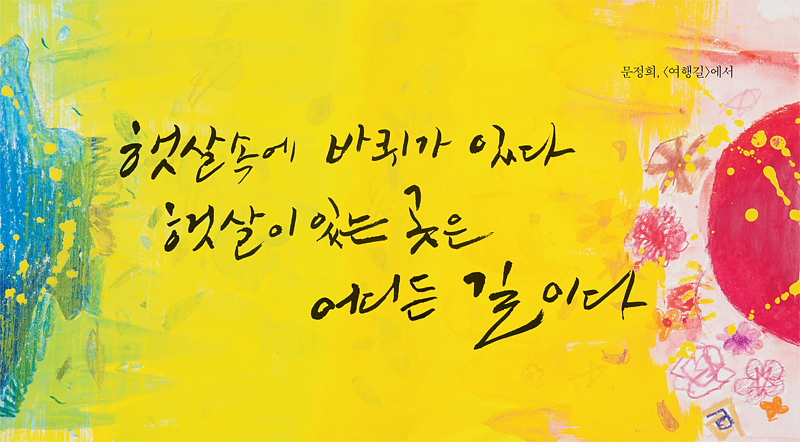 문정희, 〈여행길〉에서
햇살속에 바퀴가 있다
햇살이 있는 곳은
어디든 길이다